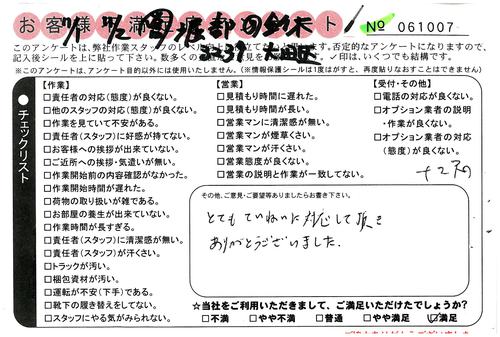 お客様満足 ト
No 061007
このアンケートは、弊社作業スタッフのレベル
否定的なアンケートになりますので、
記入後シールを上に貼って下さい。
✓印は、いくつでも結構です。
※このアンケートは、アンケート目的以外には使用いたしません。(※情報保護シールは1度はがすと、再度貼りなおすことはできません)
チェックリスト
【作業】
□責任者の対応(態度)が良くない。
□他のスタッフの対応(態度)が良くない。
□作業を見ていて不安がある。
□責任者(スタッフ)に好感が持てない。
□お客様への挨拶が出来ていない。
□ご近所への挨拶・気遣いが無い。
□作業開始前の内容確認がなかった。
□作業開始時間が遅れた。
□荷物の取り扱いが雑である。
□お部屋の養生が出来ていない。
□作業時間が長すぎる。
□責任者(スタッフ)に清潔感が無い。
□責任者(スタッフ)が汗くさい。
□トラックが汚い。
□梱包資材が汚い。
□運転が不安(下手)である。
□靴下の履き替えをしてない。
□スタッフにやる気がみられない。
【営業】
□見積もり時間に遅れた。
□見積もり時間が長い。
□営業マンに清潔感が無い。
□営業マンが煙草くさい。
□営業マンが汗くさい。
□営業態度が良くない。
□営業の説明と作業が一致してない。
【受付・その他】
□電話の対応が良くない。
□オプション業者の説明
・作業が良くない。
□オプション業者の対応
(態度)が良くない。
その他、ご意見・ご要望等ありましたらお書き下さい。
とてもていねいに対応して頂き
ありがとうございました。
☆当社をご利用いただきまして、ご満足いただけたでしょうか?
□不満 □やや不満 □普通 □やや満足 ☑満足